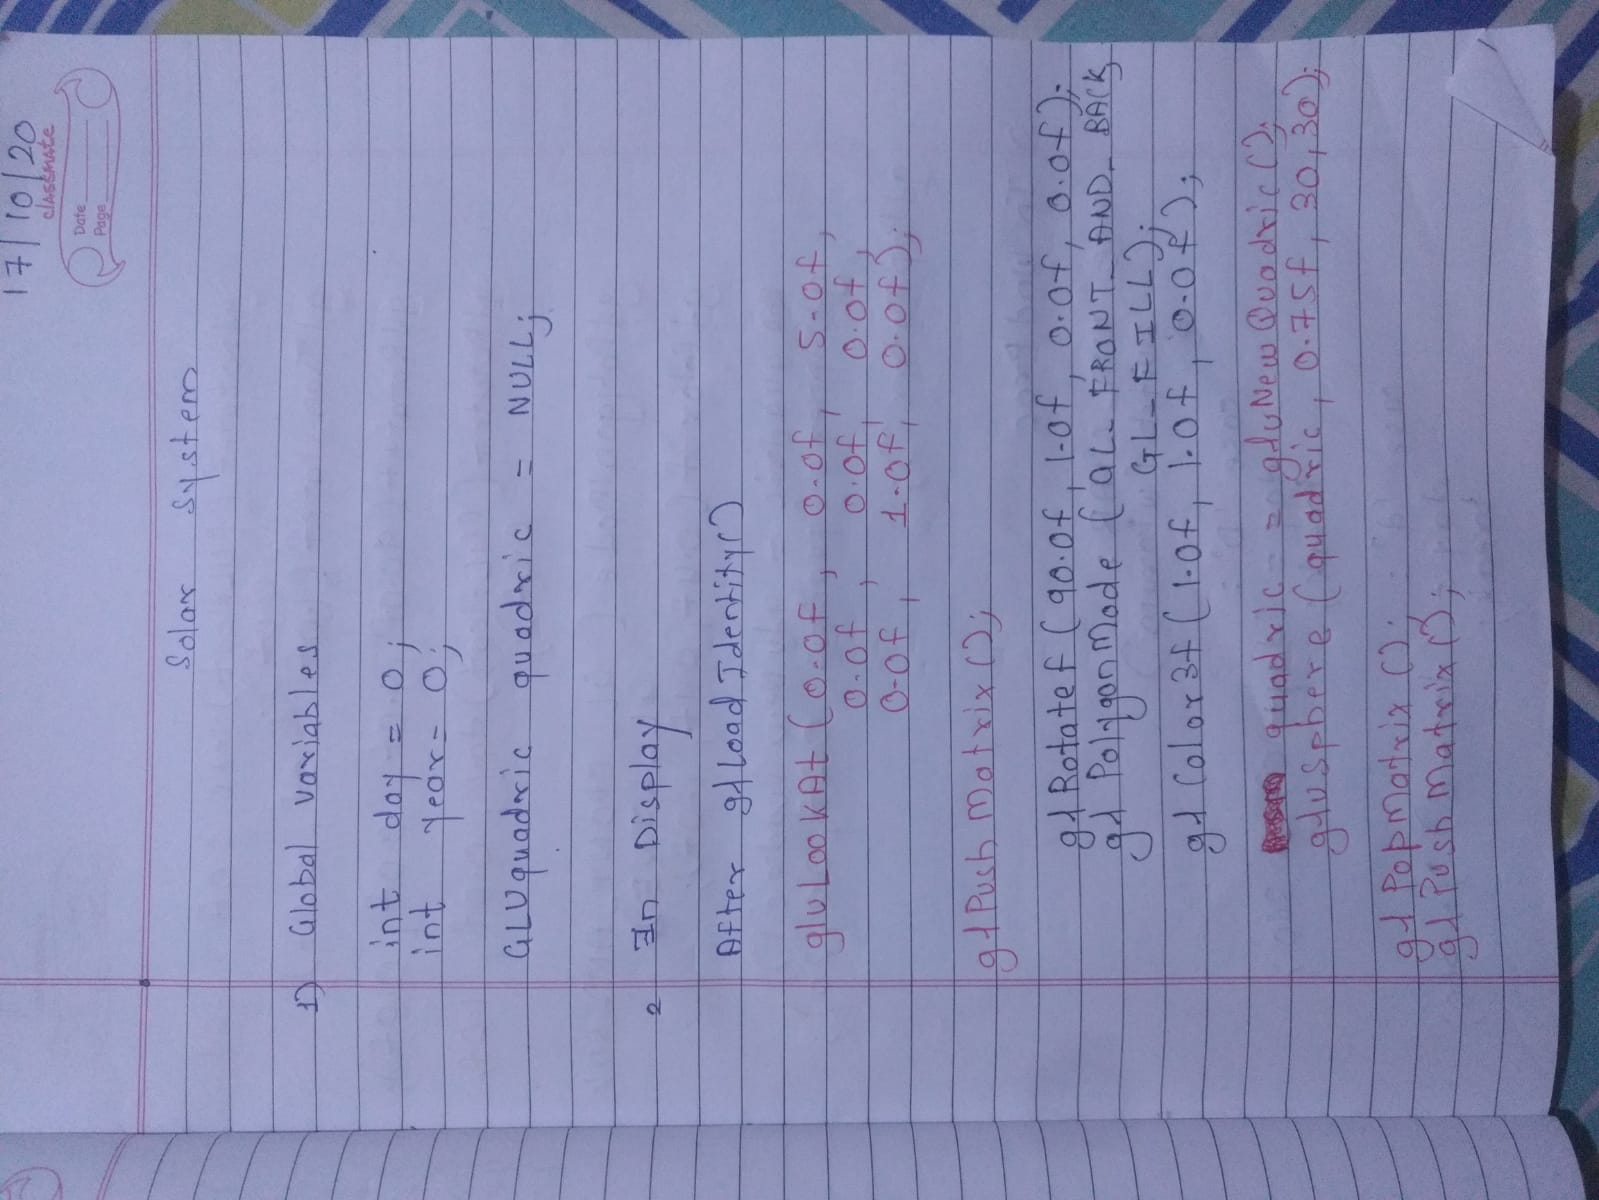 17/10/20
classmate
Date
Page
Solar System
1) Global variables
int day = 0;
int year = 0;
GLUquadric quadric = NULL;
2 In Display
After glLoadIdentity()
gluLookAt (0.0f, 0.0f, 5.0f,
0.0f, 0.0f, 0.0f,
0.0f, 1.0f, 0.0f);
glPushMatrix();
glRotatef (90.0f, 1.0f, 0.0f, 0.0f);
glPolygonMode (GL_FRONT_AND_BACK,
GL_FILL);
glColor3f (1.0f, 1.0f, 0.0f);
quadric = gluNewQuadric();
gluSphere (quadric, 0.75f, 30, 30);
glPopMatrix();
glPushMatrix();